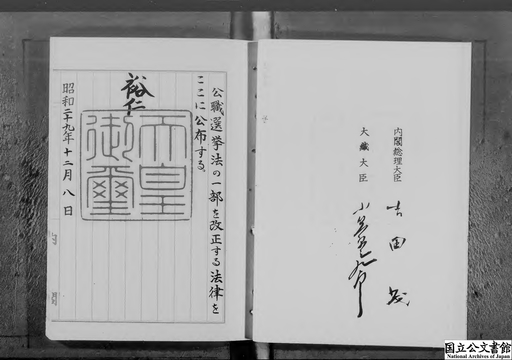 公職選挙法の一部を改正する法律を
ここに公布する
裕仁
天皇御璽
昭和二十九年十二月八日
内閣総理大臣
吉田茂
大蔵大臣
国立公文書館
National Archives of Japan